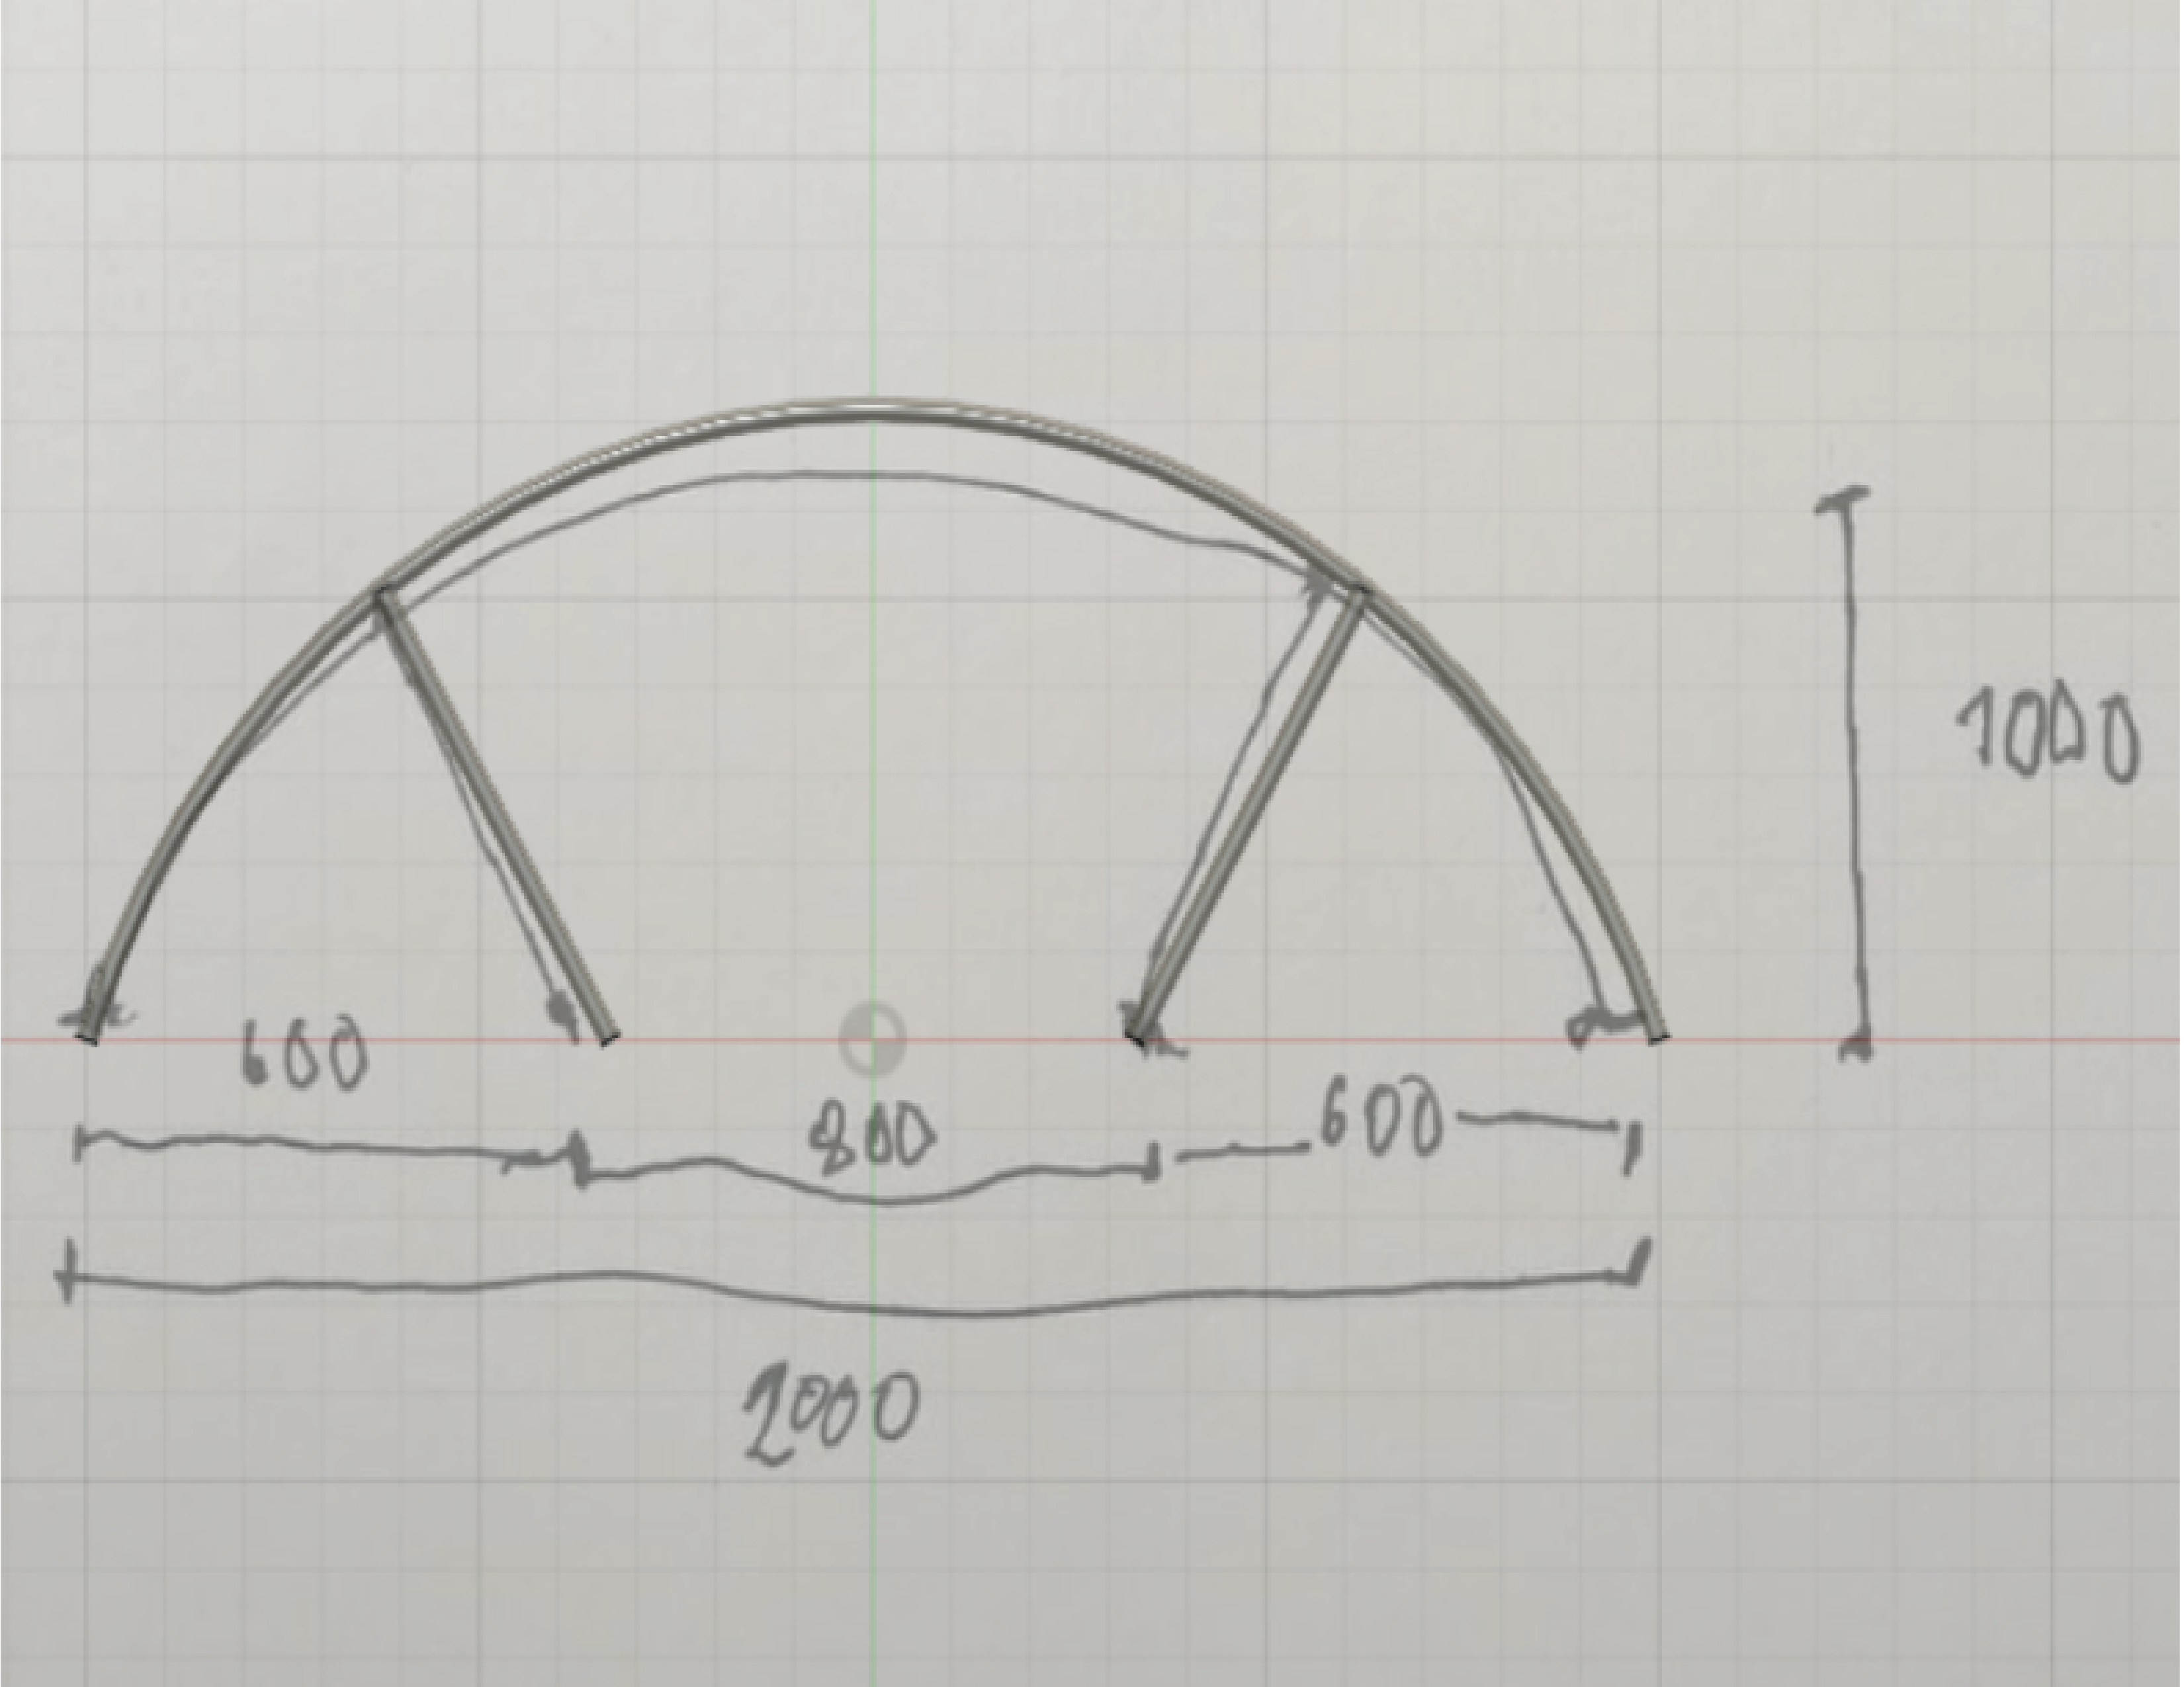 1000
600
800
600
2000